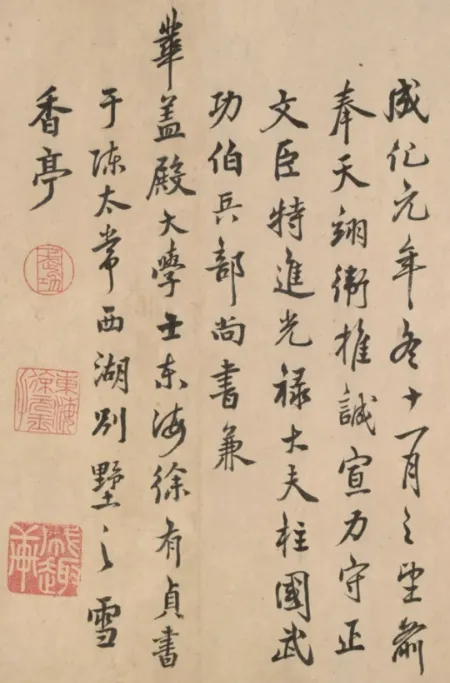 成化元年冬十一月之望前
奉天翊衛推誠宣力守正
文臣特進光禄大夫柱國武
功伯兵部尚書兼
華盖殿大學士東海徐有貞書
于陳太常西湖別墅之雪
香亭